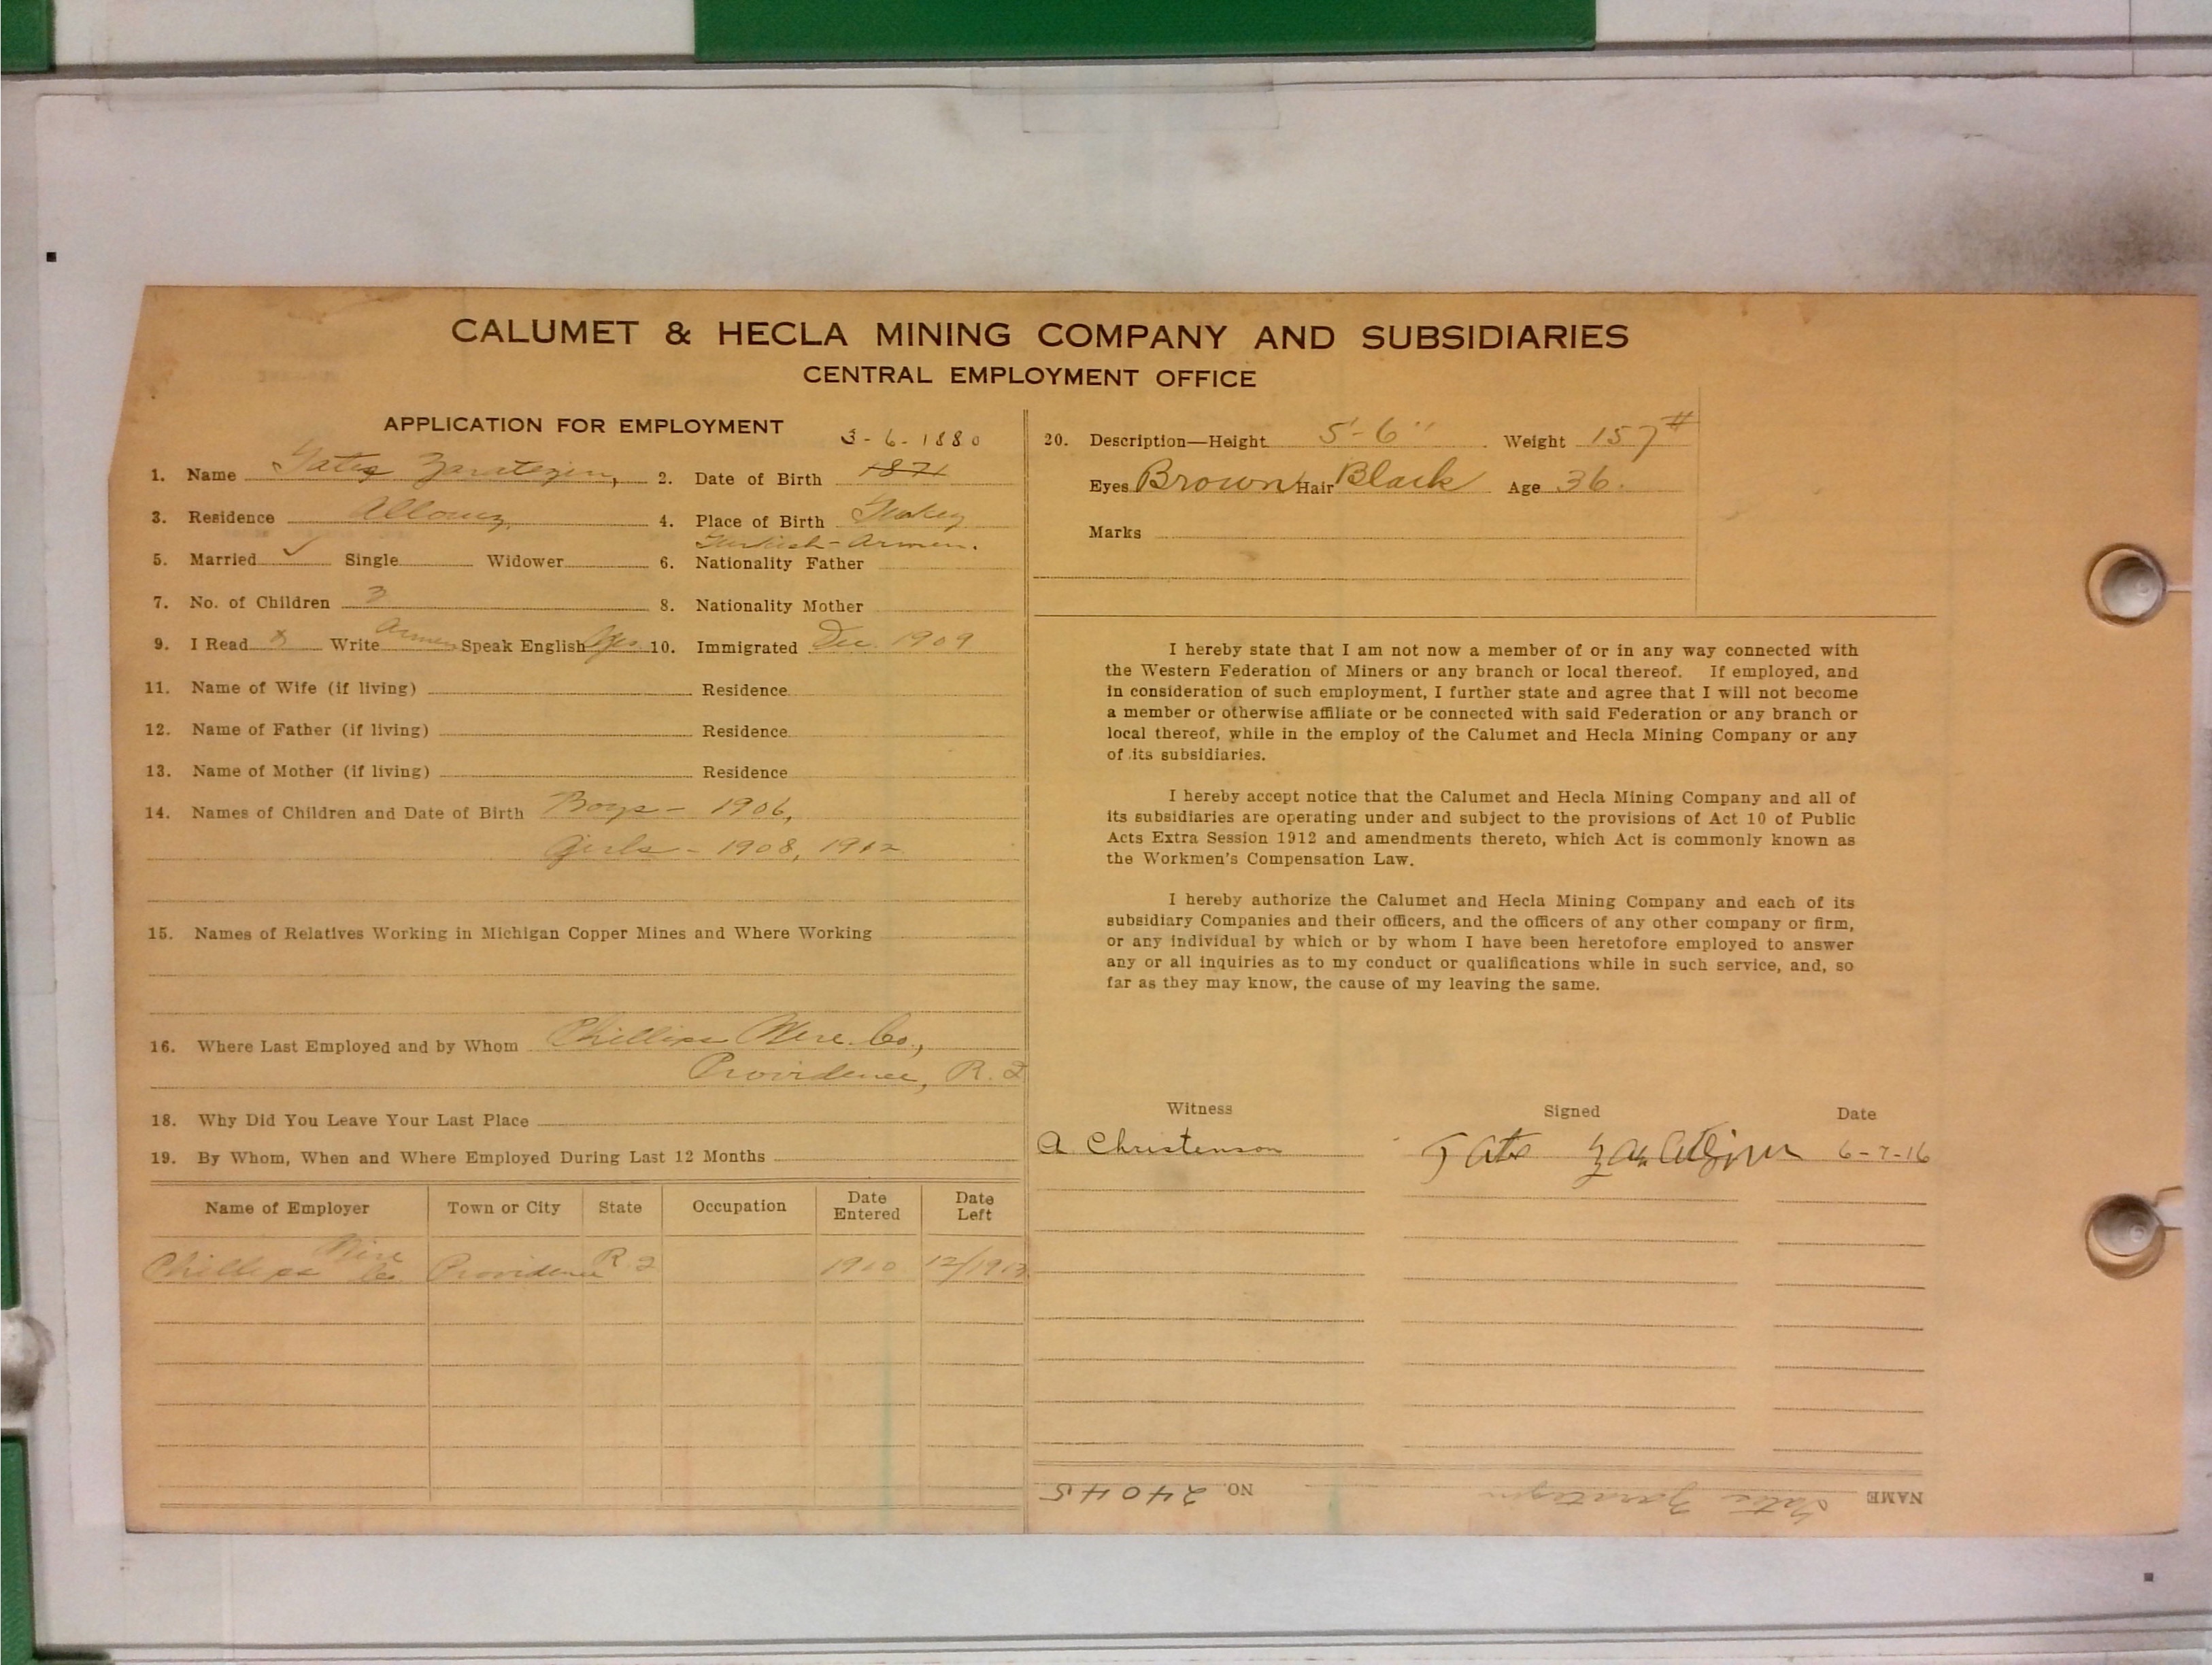 CALUMET & HECLA MINING COMPANY AND SUBSIDIARIES
CENTRAL EMPLOYMENT OFFICE
APPLICATION FOR EMPLOYMENT
3-6-1880
1. Name 2. Date of Birth 1871
3. Residence Allouez 4. Place of Birth Turkey
Turkish-Armen.
5. Married ✓ Single Widower 6. Nationality Father
7. No. of Children 3 8. Nationality Mother
9. I Read & Write Armen Speak English Yes 10. Immigrated Dec. 1909
11. Name of Wife (if living) Residence
12. Name of Father (if living) Residence
13. Name of Mother (if living) Residence
14. Names of Children and Date of Birth Boys - 1906,
Girls - 1908, 1912
15. Names of Relatives Working in Michigan Copper Mines and Where Working
16. Where Last Employed and by Whom Phillips Wire Co.,
Providence, R.I
18. Why Did You Leave Your Last Place
19. By Whom, When and Where Employed During Last 12 Months
Name of Employer Town or City State Occupation Date Entered Date Left
Phillips Wire Co. Providence R.I 1910
20. Description—Height 5'-6" Weight 157#
Eyes Brown Hair Black Age 36.
Marks
I hereby state that I am not now a member of or in any way connected with
the Western Federation of Miners or any branch or local thereof. If employed, and
in consideration of such employment, I further state and agree that I will not become
a member or otherwise affiliate or be connected with said Federation or any branch or
local thereof, while in the employ of the Calumet and Hecla Mining Company or any
of its subsidiaries.
I hereby accept notice that the Calumet and Hecla Mining Company and all of
its subsidiaries are operating under and subject to the provisions of Act 10 of Public
Acts Extra Session 1912 and amendments thereto, which Act is commonly known as
the Workmen's Compensation Law.
I hereby authorize the Calumet and Hecla Mining Company and each of its
subsidiary Companies and their officers, and the officers of any other company or firm,
or any individual by which or by whom I have been heretofore employed to answer
any or all inquiries as to my conduct or qualifications while in such service, and, so
far as they may know, the cause of my leaving the same.
Witness Signed Date
A. Christenson 6-7-16
NAME NO. 24045